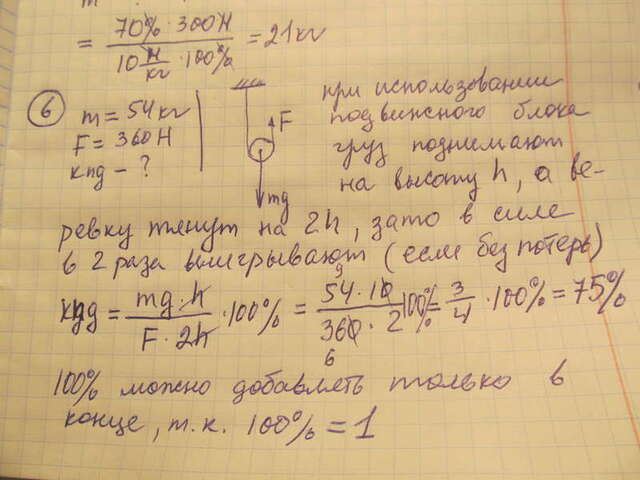 = 70% · 300Н / 10 Н/кг · 100% = 21кг
⑥ m = 54кг
F = 360Н
кпд – ?
F
mg
при использовании
подвижного блока
груз поднимают
на высоту h, а ве-
ревку тянут на 2h, зато в силе
в 2 раза выигрывают (если без потерь)
кпд = mg·h / F·2h · 100% = 54·10 / 360·2 100% = 3/4 · 100% = 75%
9
6
100% можно добавлять только в
конце, т.к. 100% = 1